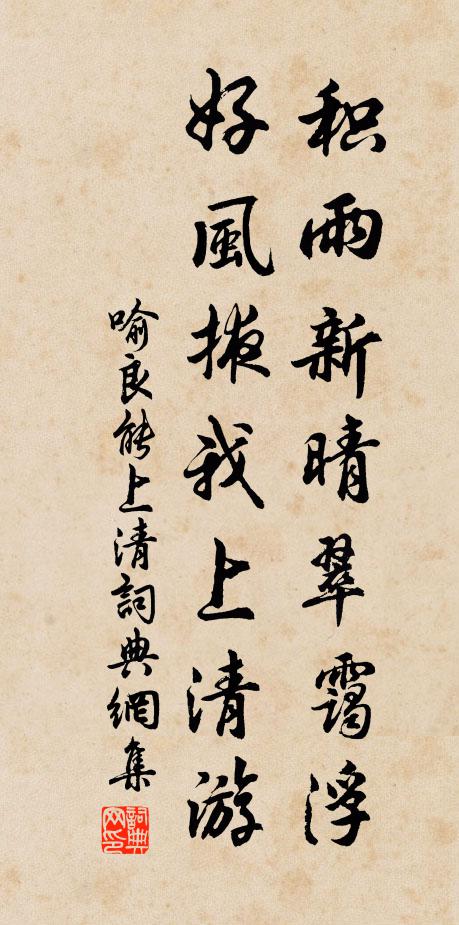 积雨新晴翠霭浮
好風掖我上清游
喻良能上清詞典網集
詞典网印